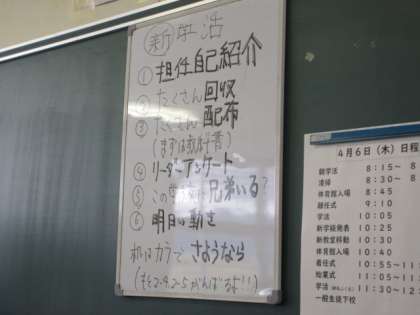 新学活
① 担任自己紹介
② たくさん回収
③ たくさん配布
(まずは教科書)
④ リーダーアンケート
⑤ この学校に兄弟いる?
⑥ 明日の動き
机はカラで さようなら
4月6日(木)日程
朝学活 8:15~
清掃 8:30~8
体育館入場 8:45
離任式 9:10
学活 10:05
新学級発表 10:25
新教室移動 10:30
体育館入場 10:40
着任式 10:55~11
始業式 11:05~11
学活 11:35~
一般生徒下校